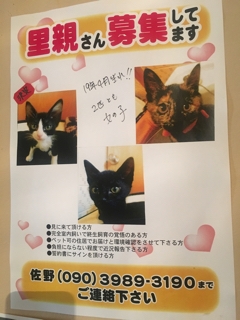 里親さん募集してます
19年4月生れ!!
2匹とも
女の子
●見に来て頂ける方
●完全室内飼いで終生飼育の覚悟のある方
●ペット可の住居でお届けと環境確認をさせて下さる方
●負担にならない程度で近況報告下さる方
●誓約書にサインを頂ける方
佐野(090)3989-3190まで
ご連絡下さい